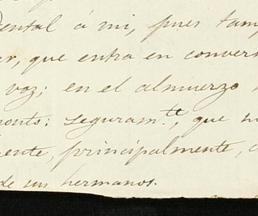 ental á mi, pues tam
r, que entra en conver
voz; en el almuerzo
onto: seguramte, que
ente, principalmente,
de un hermanos.